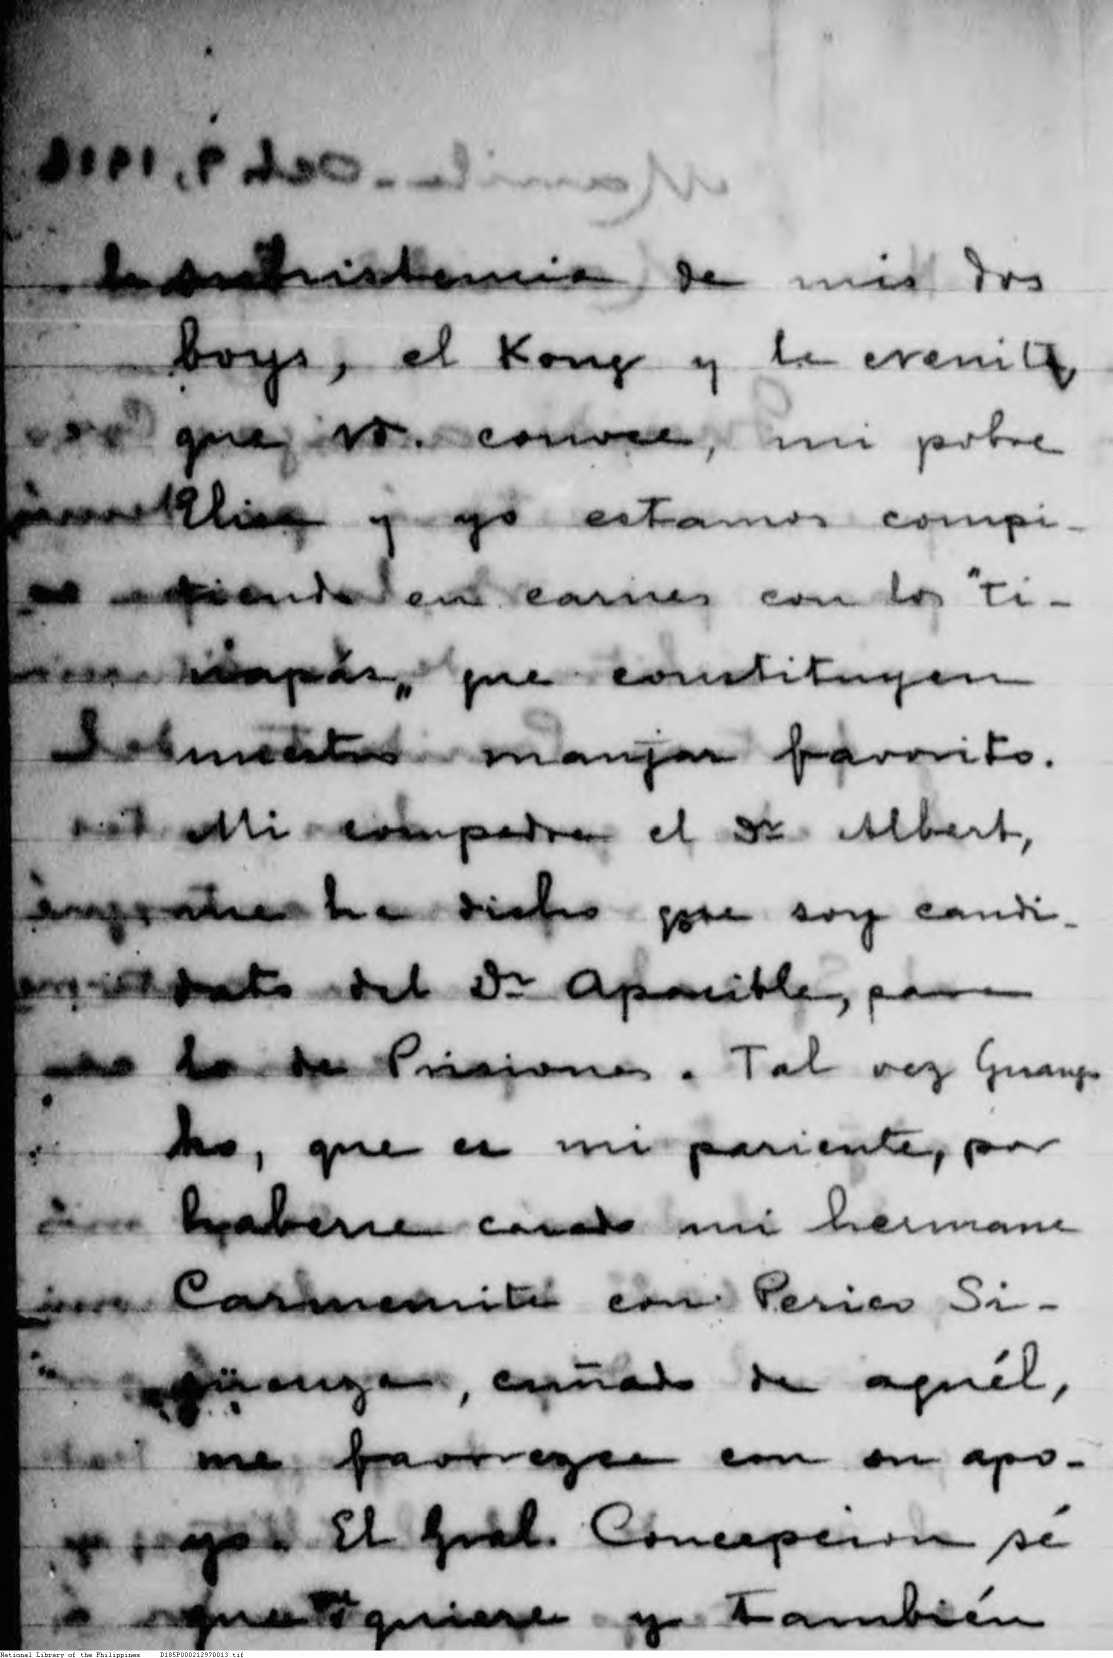 la subsistencia de mis dos
boys, el Kong y la
que Vd. conoce, mi pobre
Elisa y yo estamos compi-
tiendo en carnes con los "ti-
napás„ que constituyen
nuestro manjar favorito.
Mi compadre el Dr Albert,
me ha dicho que soy candi-
dato del Dr Apacible, para
lo de Prisiones. Tal vez Guang
ko, que es mi pariente, por
haberse casado mi hermana
Carmencita con Perico Si-
güenza, cuñado de aquél,
me favorezca con su apo-
yo. El Gral. Concepcion sé
que me quiere y también
National Library of the Philippines D185P000212970013.tif